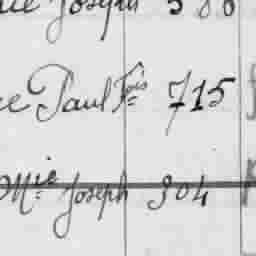 Joseph 380
ce Paul Fois 715
Mie Joseph 904